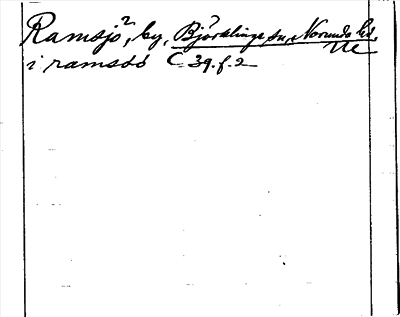 Ramsjö, by, Björklinge sn, Norunda hd,
Ue
i ramsdö C 39. f. 2